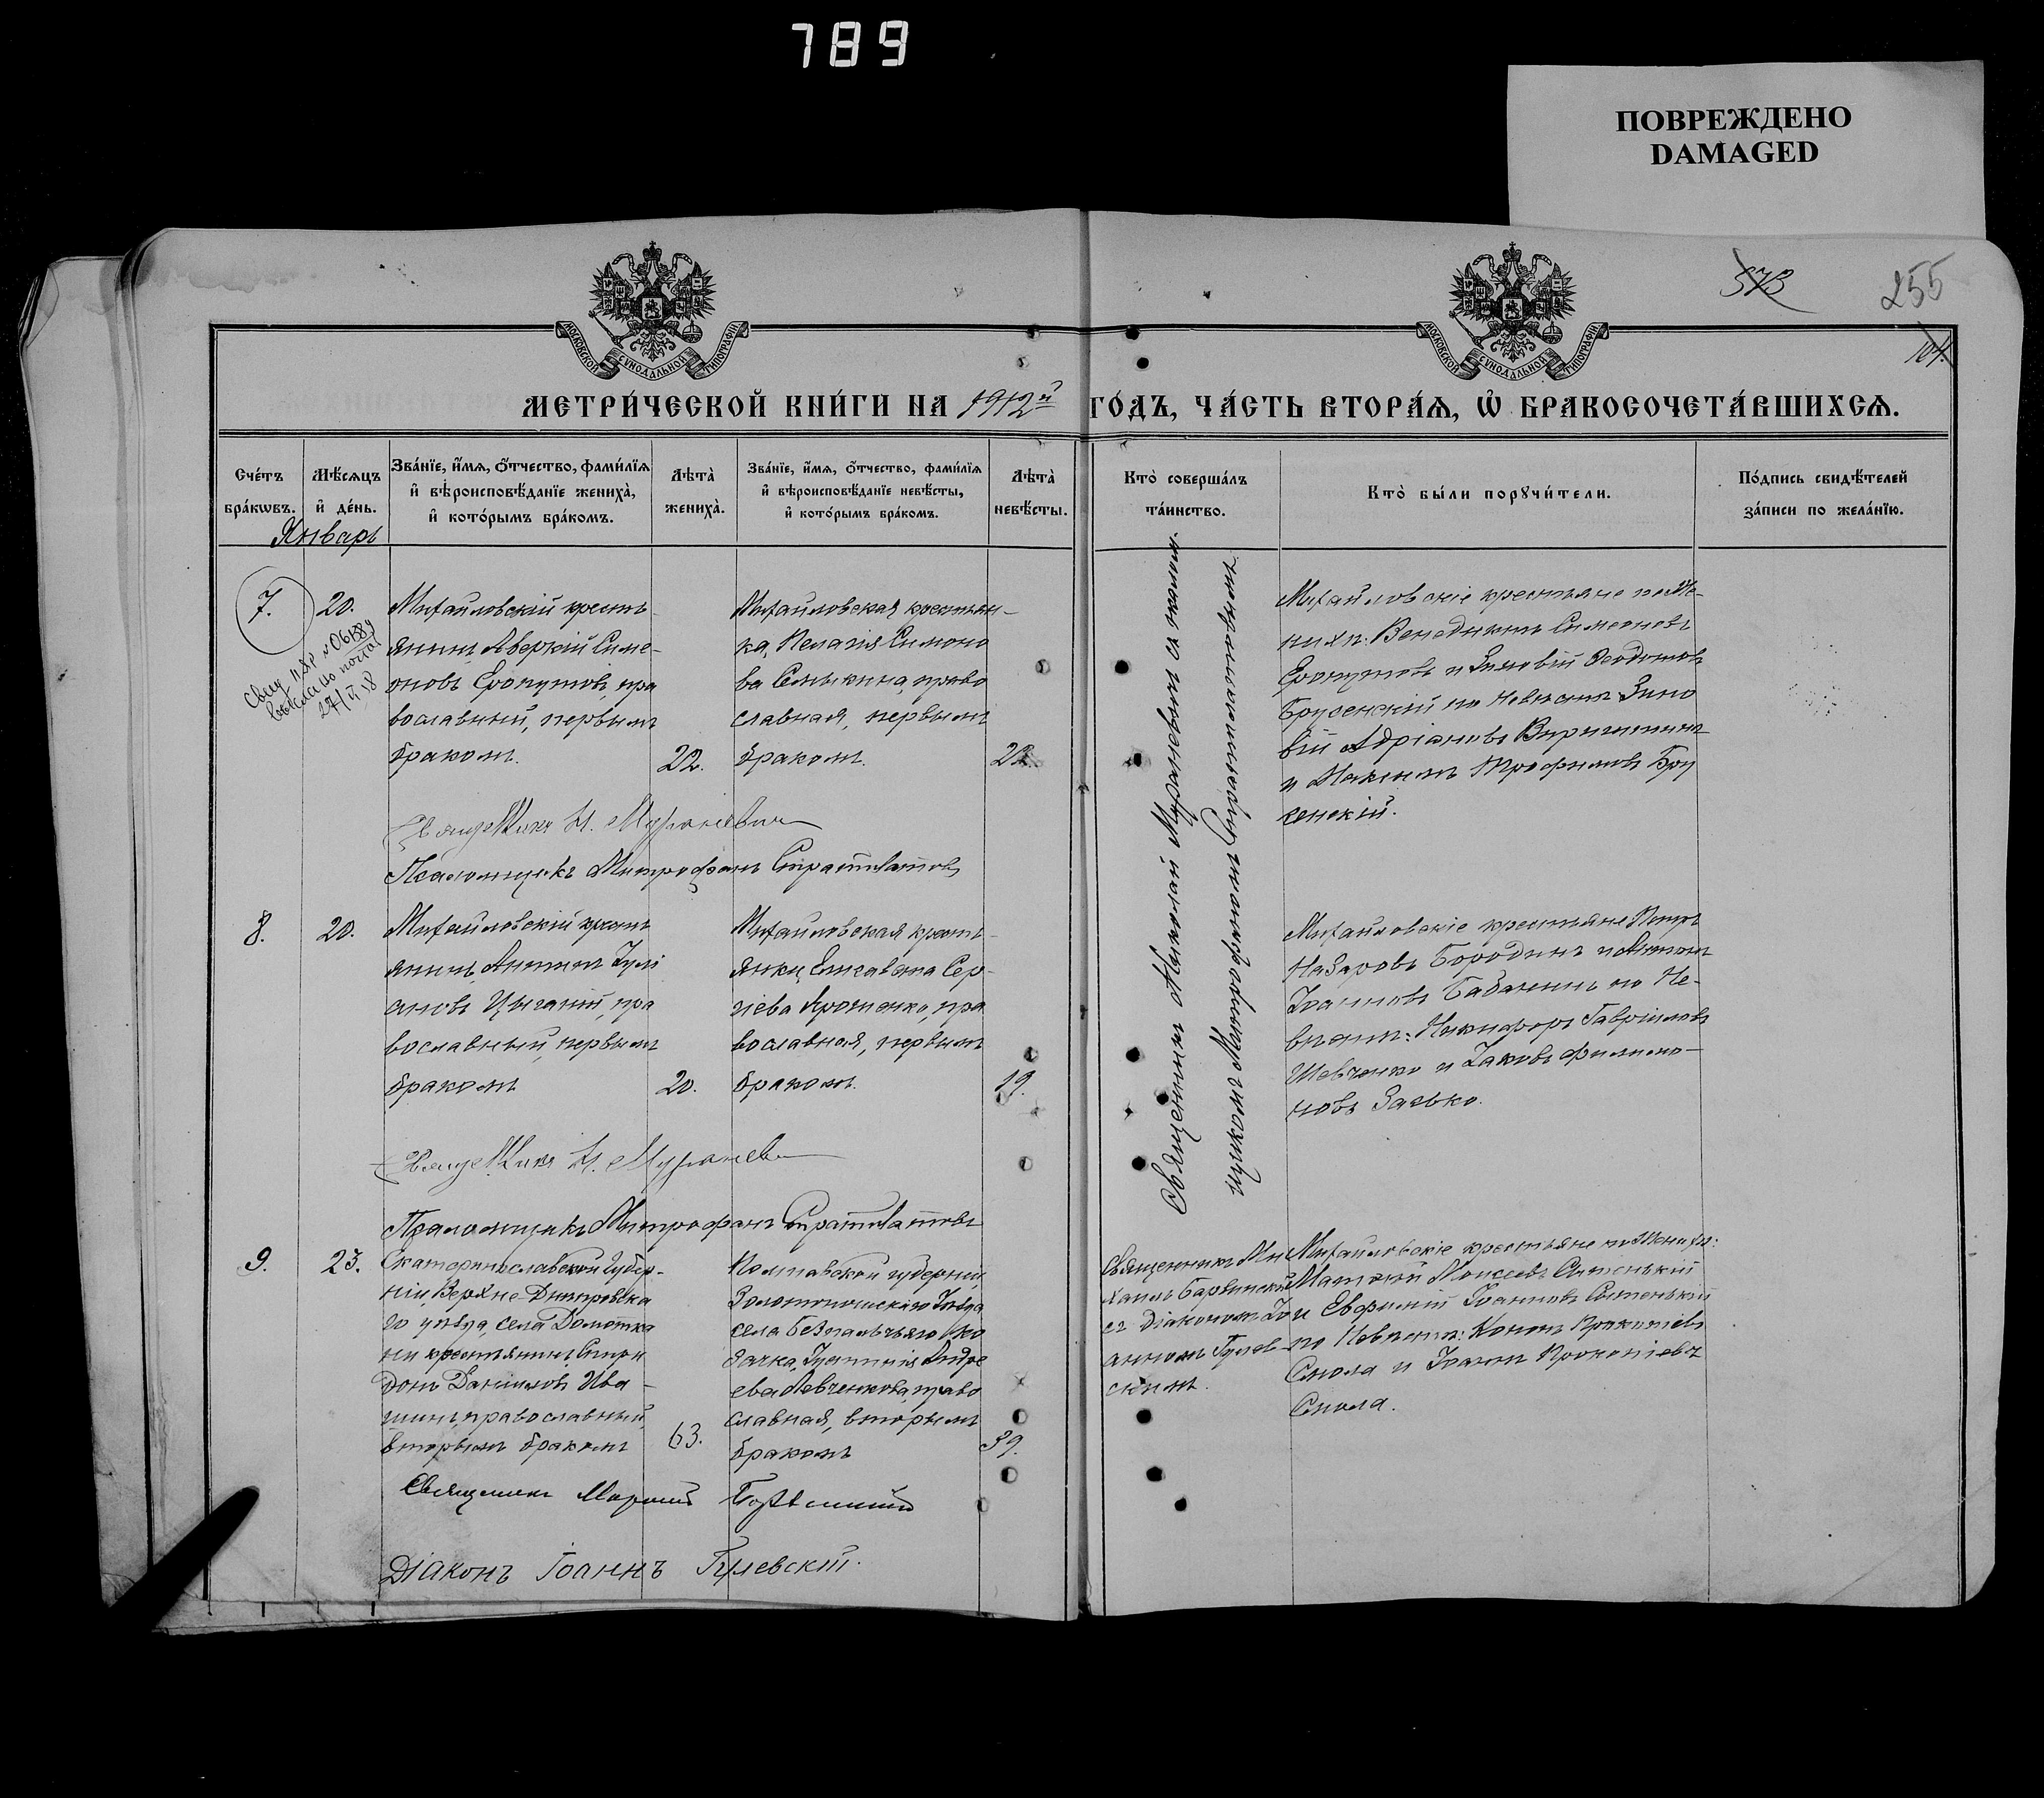 789
ПОВРЕЖДЕНО
DAMAGED
573
255
104.
МОСКОВСКОЙ СѴНОДАЛЬНОЙ ТИПОГРАФІИ
МОСКОВСКОЙ СѴНОДАЛЬНОЙ ТИПОГРАФІИ
МЕТРИ́ЧЕСКОЙ КНИ́ГИ НА 1912й ГО́ДЪ, ЧА́СТЬ ВТОРА́Ѧ, Ѽ БРАКОСОЧЕТА́ВШИХСѦ.
Сче́тъ
бра́кѡвъ.
Мѣ́сѧцъ
и҆ де́нь.
Зва́нїе, и҆́мѧ, ѻ҆́тчество, фами́лїѧ
и҆ вѣроисповѣ́данїе жениха̀,
и҆ кото́рымъ бра́комъ.
Лѣта̀
жениха̀.
Зва́нїе, и҆́мѧ, ѻ҆́тчество, фами́лїѧ
и҆ вѣроисповѣ́данїе невѣ́сты,
и҆ кото́рымъ бра́комъ.
Лѣта̀
невѣ́сты.
Кто̀ соверша́лъ
та́инство.
Кто̀ бы́ли порꙋчи́тели.
По́дпись свидѣ́телей
за́писи по жела́нїю.
Январь
7.
20.
Михайловскій кресть-
янинъ Аверкій Симе-
оновъ Ерокутовъ, пра
вославный, первымъ
бракомъ.
22.
Михайловская крестьян-
ка, Пелагія Симоно
ва Семыкина, право
славная, первымъ
бракомъ.
22.
Священникъ Николай Муралевичъ съ псалом-
щикомъ Митрофаномъ Стратилатовымъ
Михайловскіе крестьяне по Же-
нихѣ: Венедиктъ Симеоновъ
Ерокутовъ и Зиновій Ѳеодотовъ
Брусенскій по Невѣстѣ Зино
вій Адріановъ
и Максимъ Трофимовъ Бру
сенскій.
Священникъ Н. Муралевичъ
Псаломщикъ Митрофанъ Стратилатовъ
8.
20.
Михайловскій кресть
янинъ, Антонъ Іулі
ановъ Цыганій, пра
вославный, первымъ
бракомъ
20.
Михайловская кресть-
янка Елисавета Сер-
гіева Ярошенко, пра
вославная, первымъ
бракомъ.
19.
Михайловскіе крестьяне Петръ
Назаровъ Бородинъ и Антонъ
Іоанновъ Бабанинъ по Не-
вѣстѣ: Никифоръ Гавріиловъ
Шевченко и Іаковъ Филимо-
новъ Заяько.
Священникъ Н. Муралевичъ
Псаломщикъ Митрофанъ Стратилатовъ
9.
23.
Екатеринославской губер-
ніи, Верхне Днѣпровска
го уѣзда, села Домотка
ни крестьянинъ Спири
донъ Даніиловъ Ива-
шинъ, православный,
вторымъ бракомъ
63.
Полтавской губерніи
Золотоношскаго Уѣзда
села Безпальчьяго ко
зачка, Іустинія Андре
ева Левченкова, право
славная, вторымъ
бракомъ
39.
Священникъ Ми
хаилъ
съ діакономъ Іо
анномъ Гулев-
скимъ.
Михайловскіе крестьяне по Женихѣ:
Матѳій Моисеевъ Ситенькій
и Евфимій Іоанновъ Ситенькій
по Невѣстѣ: Кононъ Прокопіевъ
Смола и Іоаннъ Прокопіевъ
Смола.
Священникъ
Діаконъ Іоаннъ Гулевскій.